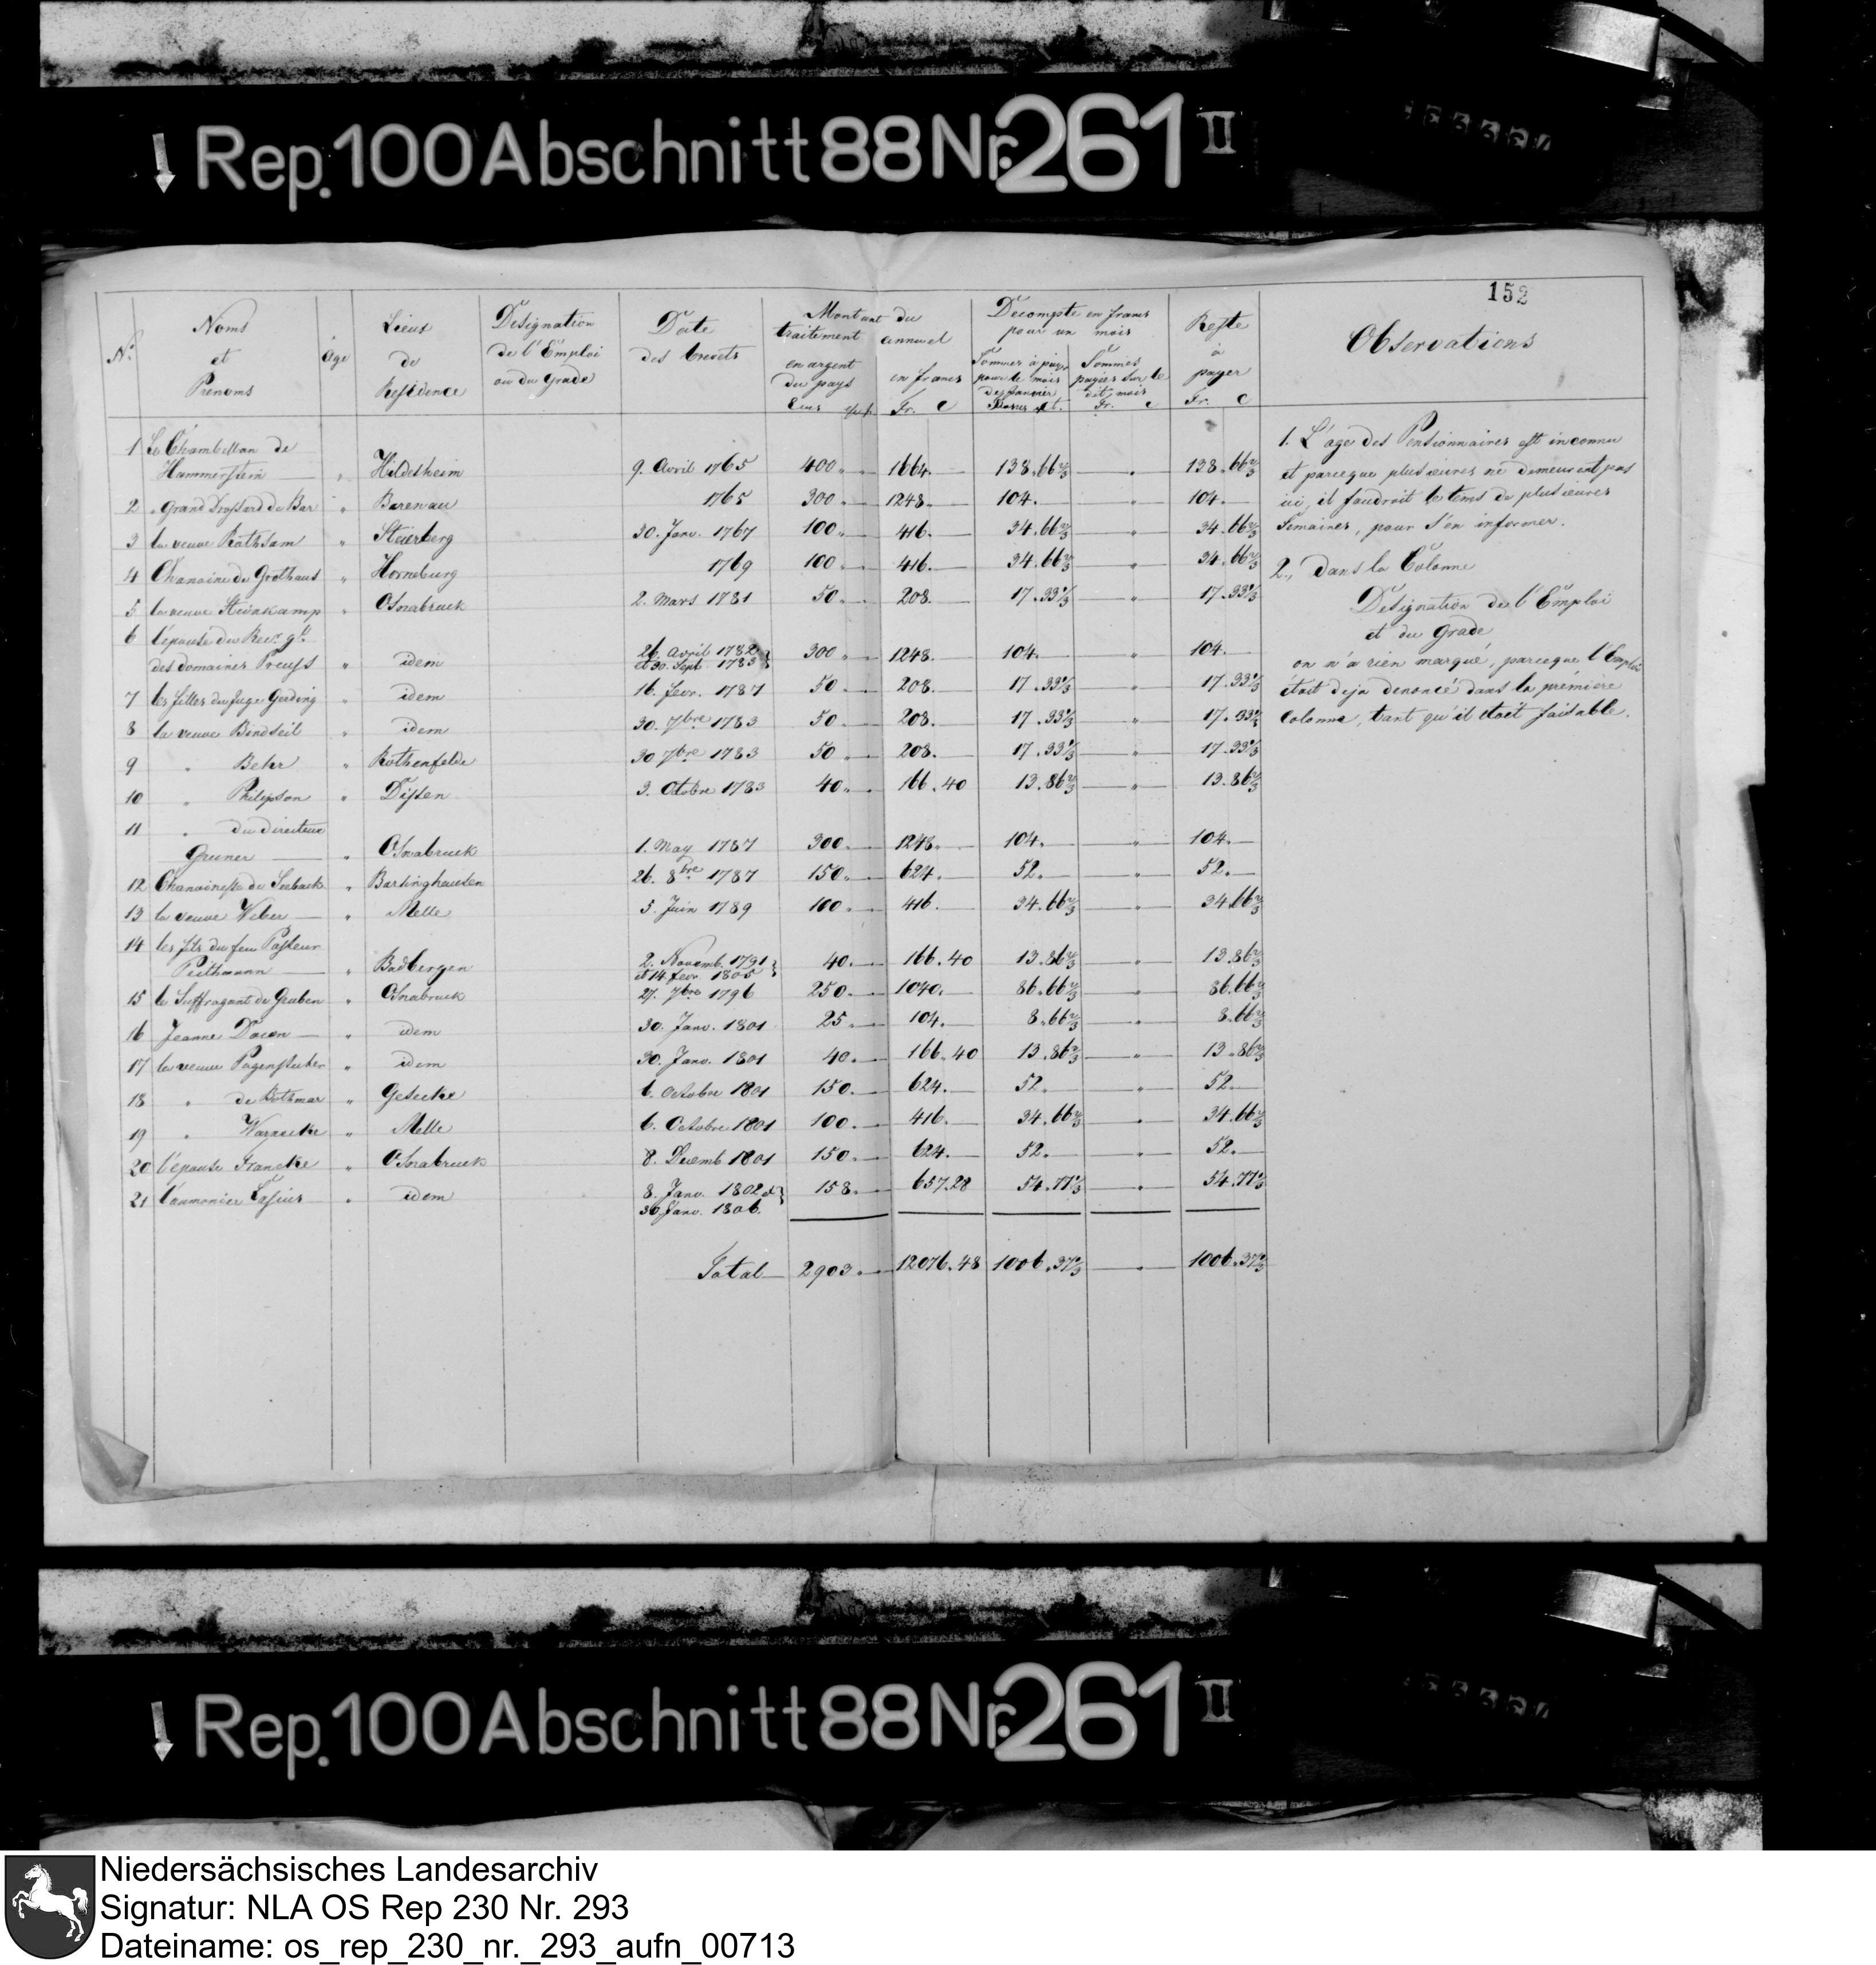 Rep. 100 Abschnitt 88 Nr. 261 II
152
No.
Noms
et
Prenoms
Age
Lieux
de
Residence
Designation
de l'Emploi
ou du Grade
Date
des brevets
Montant du
traitement annuel
en argent
du pays
Ecus
en francs
Fr. C
Decompte en francs
pour un mois
Sommes à payer
pour le mois
de Janvier
Francs Ct.
Sommes
payées sur le
dit mois
Fr. c
Reste
à
payer
Fr. C
Observations
1 Le Chambellan de
Hammerstein " Hildesheim 9. Avril 1765 400 " 1664. 138.66 2/3 " 138.66 2/3
2 " Grand Drossard de Bar " Barenau 1765 300 " 1248. 104. " 104.
3 la veuve Rathsam " Steierberg 30. Janv. 1767 100 " 416. 34.66 2/3 " 34.66 2/3
4 Chanoine de Grothaus " Horneburg 1769 100 " 416. 34.66 2/3 " 34.66 2/3
5 la veuve Steinkamp " Osnabruck 2. Mars 1781 50 " 208. 17.33 1/3 " 17.33 1/3
6 l'épouse du Rec. gl.
des domaines Preuss " idem 26. Avril 1782 et 30. Sept. 1783 300 " 1248. 104. " 104.
7 les filles du Juge Gerding " idem 16. fevr. 1787 50 " 208. 17.33 1/3 " 17.33 1/3
8 la veuve Bindseil " idem 30. 7bre 1783 50 " 208. 17.33 1/3 " 17.33 1/3
9 " Behr " Rothenfelde 30 7bre 1783 50 " 208. 17.33 1/3 " 17.33 1/3
10 " Philipson " Dissen 3. Octobre 1783 40 " 166.40 13.86 2/3 " 13.86 2/3
11 " du directeur
Gruner " Osnabruck 1. May 1787 300 " 1248. 104. " 104.
12 Chanoinesse de Seebach " Barlinghausen 26. 8bre 1787 150 " 624. 52. " 52.
13 la veuve Weber " Melle 5. Juin 1789 100 " 416. 34.66 2/3 " 34.66 2/3
14 les fils du feu Pasteur
Peithmann " Badbergen 2. Novemb. 1791 et 14. fevr. 1805 40. 166.40 13.86 2/3 " 13.86 2/3
15 le Suffragant de Gruben " Osnabruck 27. 7bre 1796 250. 1040. 86.66 2/3 " 86.66 2/3
16 Jeanne " idem 30. Janv. 1801 25 104. 8.66 2/3 " 8.66 2/3
17 la veuve Pagenstecher " idem 30. Janv. 1801 40. 166.40 13.86 2/3 " 13.86 2/3
18 " de Bothmar " Gesecke 6. Octobre 1801 150. 624. 52. " 52
19 " Warnecke " Melle 6. Octobre 1801 100. 416. 34.66 2/3 " 34.66 2/3
20 l'épouse Francke " Osnabruck 8. Decemb 1801 150. 624. 52. " 52.
21 l'aumonier Lasius " idem 8. Janv. 1802 et 158. 657.28 54.77 1/3 " 54.77 1/3
30. Janv. 1806.
Total 2903. 12076.48 1006.37 1/3 " 1006.37 1/3
1. L'age des Pensionnaires est inconnu
et parceque plusieures ne demeurent pas
ici, il faudroit le tems de plusieures
Semaines, pour s'en informer.
2., Dans la Colonne
Designation de l'Emploi
et du Grade
on n'a rien marqué, parceque l'Emploi
étoit deja denoncé dans la prémière
Colonne, tant qu'il étoit faisable.
Rep. 100 Abschnitt 88 Nr. 261 II
Niedersächsisches Landesarchiv
Signatur: NLA OS Rep 230 Nr. 293
Dateiname: os_rep_230_nr._293_aufn_00713